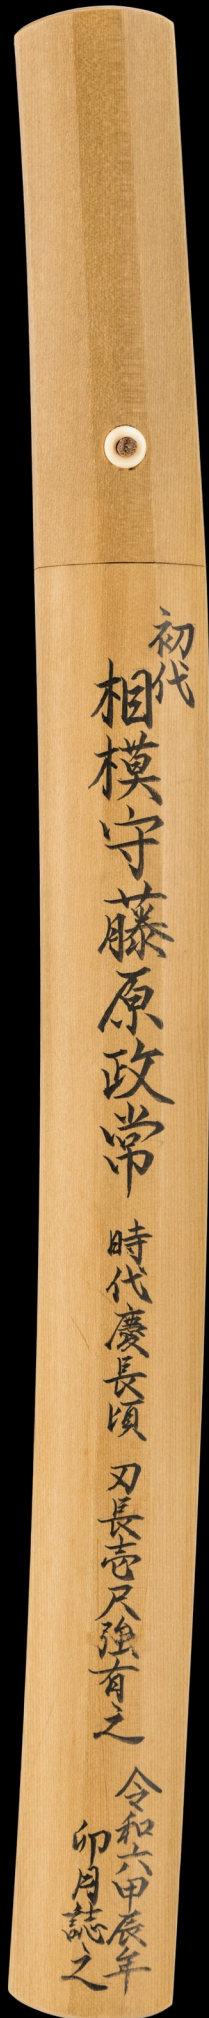 初代
相模守藤原政常
時代慶長頃
刃長壱尺強有之
令和六甲辰年
卯月誌之